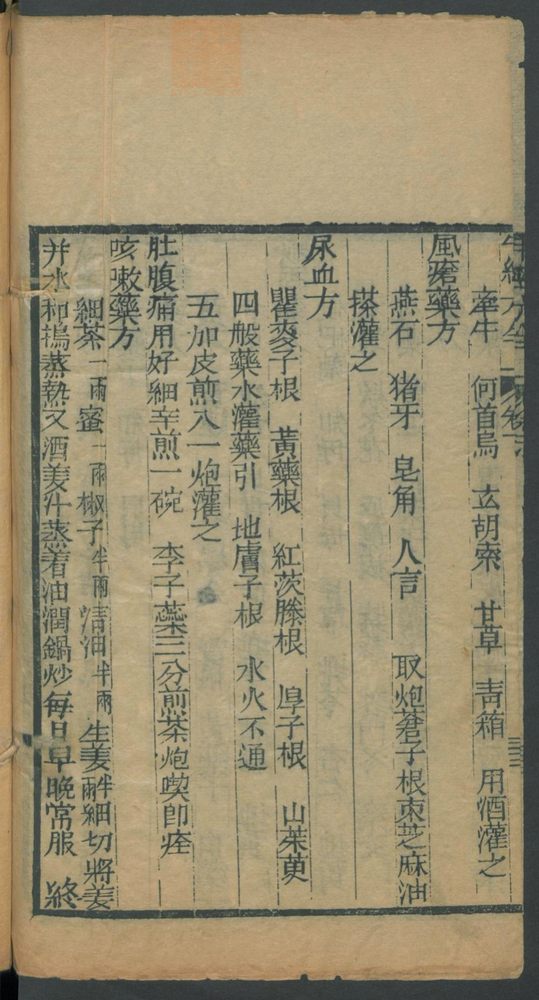 牽牛　何首烏　玄胡索　甘草　青箱　用酒灌之
風瘡藥方
燕石　猪牙　皂角　人言　取炮蒼子根束芝麻油
搽灌之
尿血方
瞿麥子根　黃藥根　紅茨滕根　厚子根　山茱萸
四般藥水灌藥引　地膚子根　水火不通
五加皮煎入一炮灌之
肚腹痛用好細辛煎一碗　李子藥三分煎茶炮喫即痊
咳嗽藥方
細茶一兩蜜一兩椒子半兩清油半兩生姜半兩細切將姜
并水和搗蒸熱又酒姜汁蒸着油潤鍋炒每日早晚常服　終